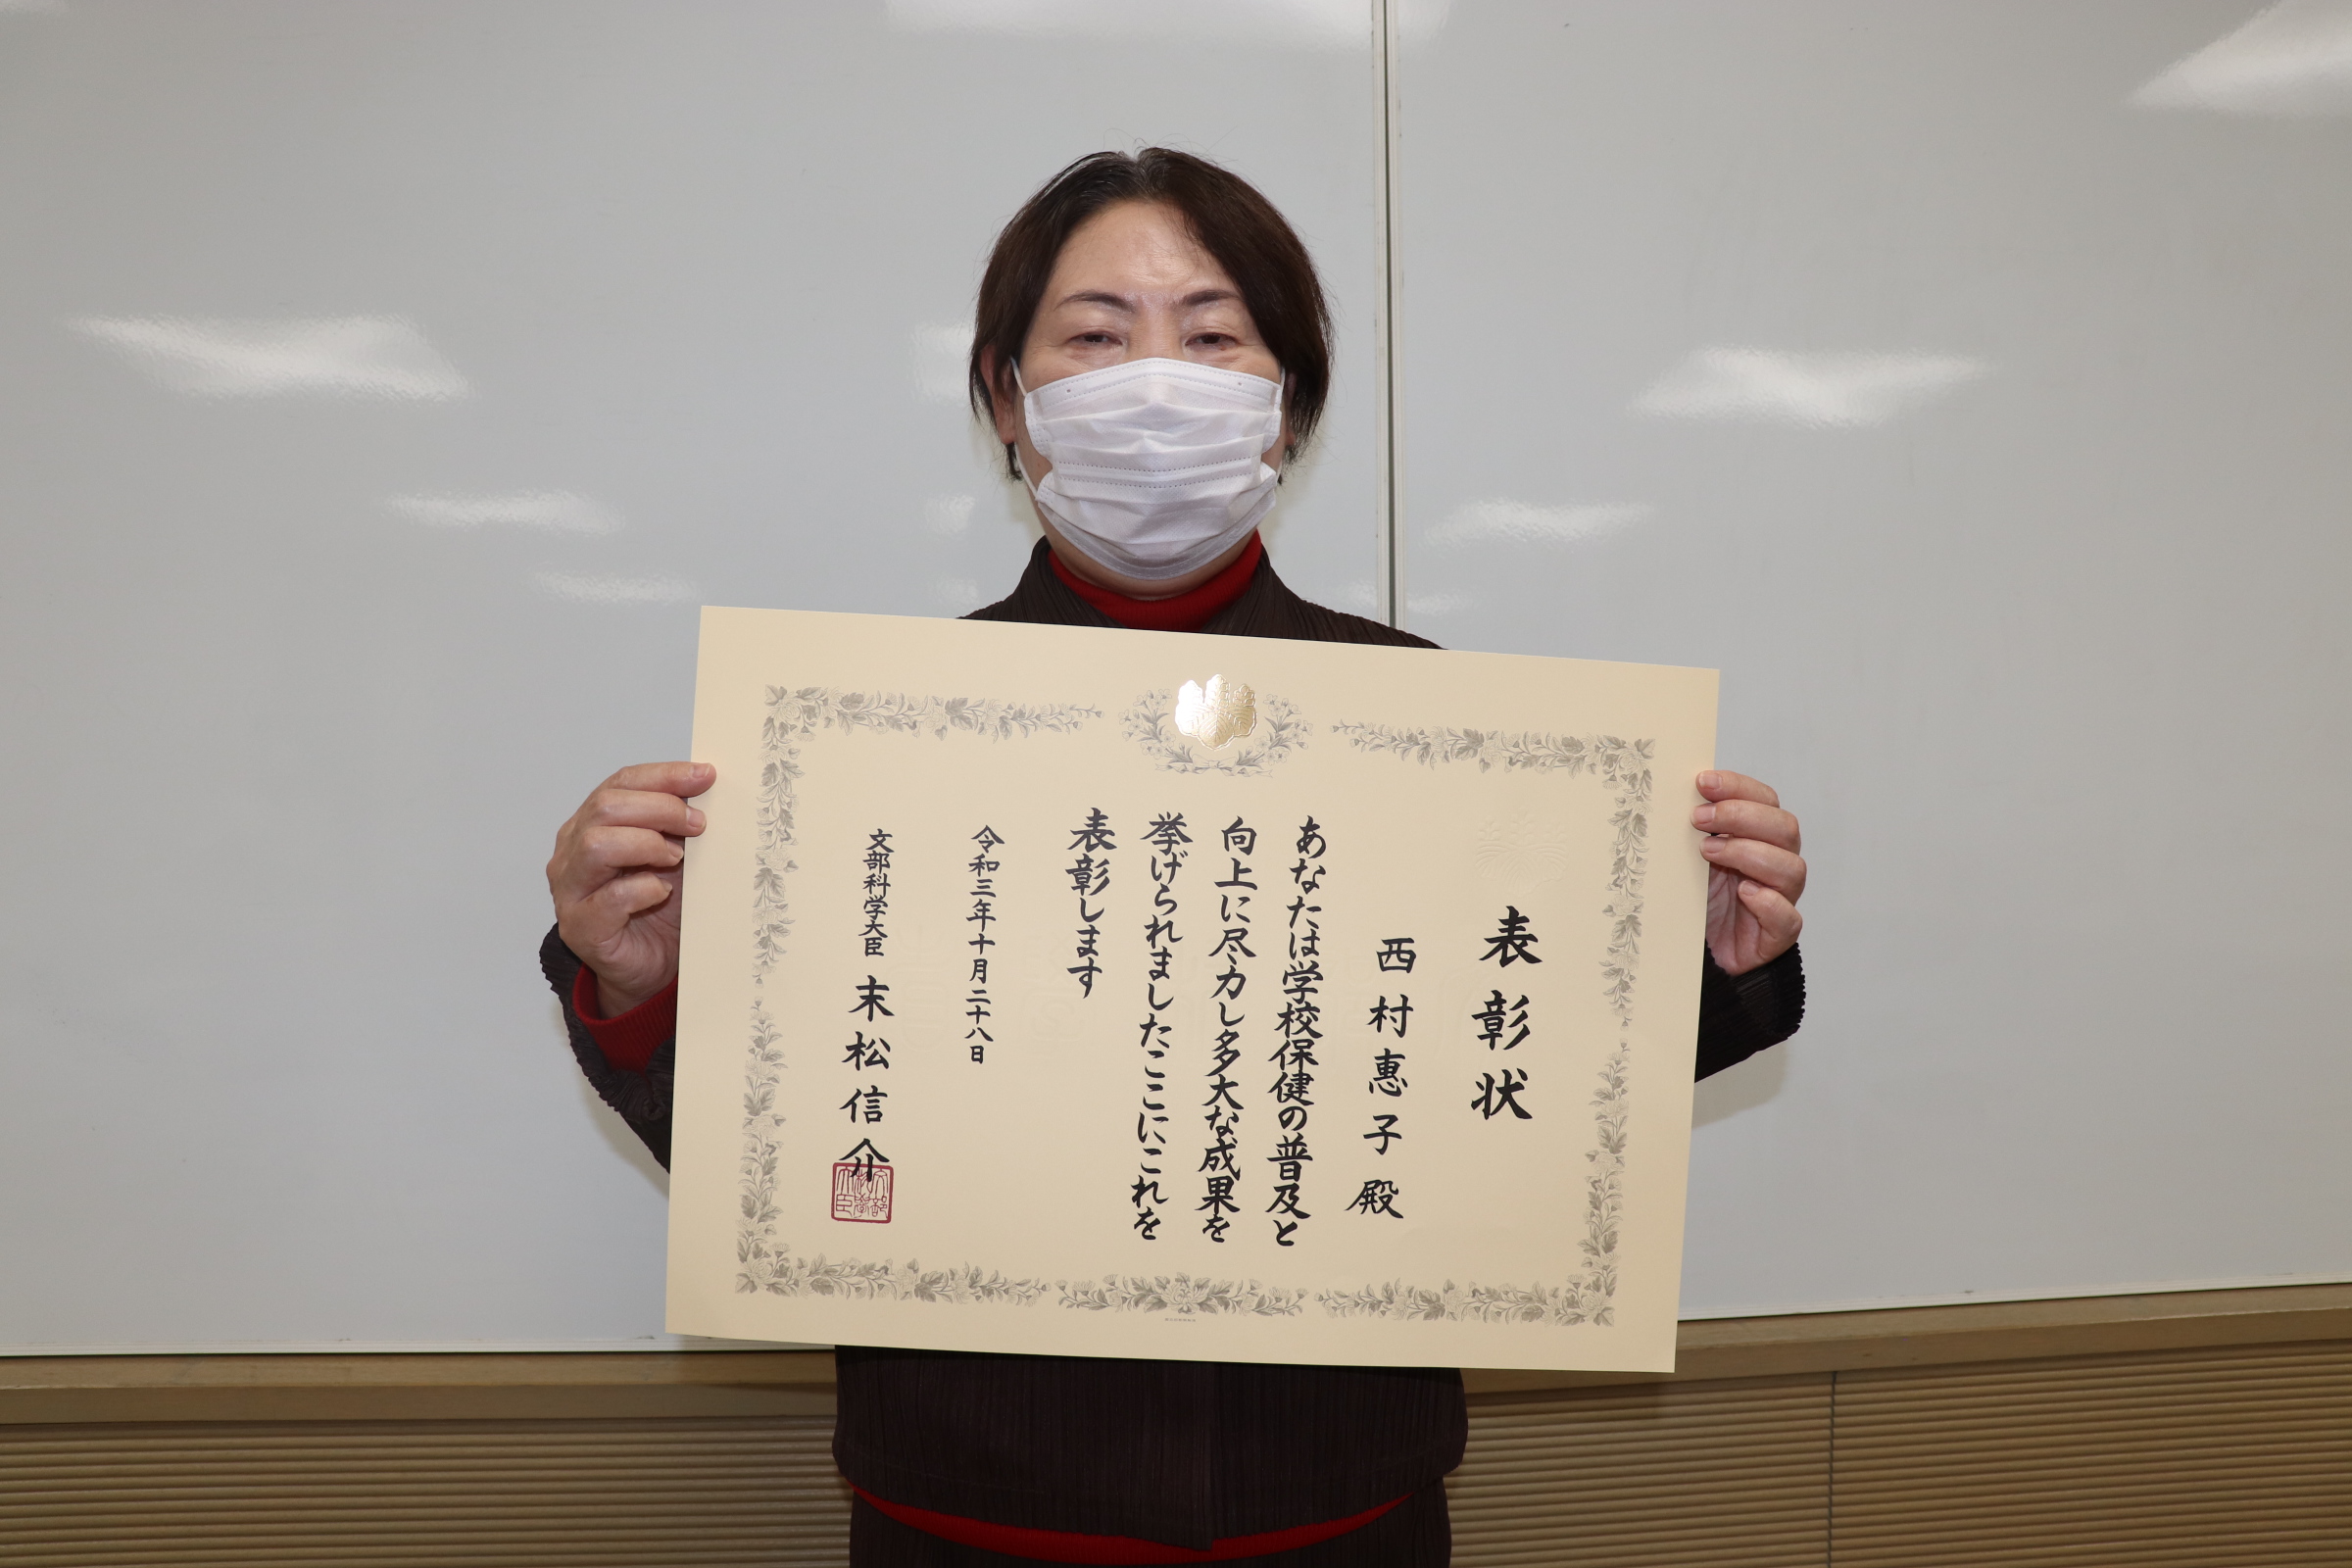 表彰状
西村惠子殿
あなたは学校保健の普及と
向上に尽力し多大な成果を
挙げられましたここにこれを
表彰します
令和三年十月二十八日
文部科学大臣 末松信介